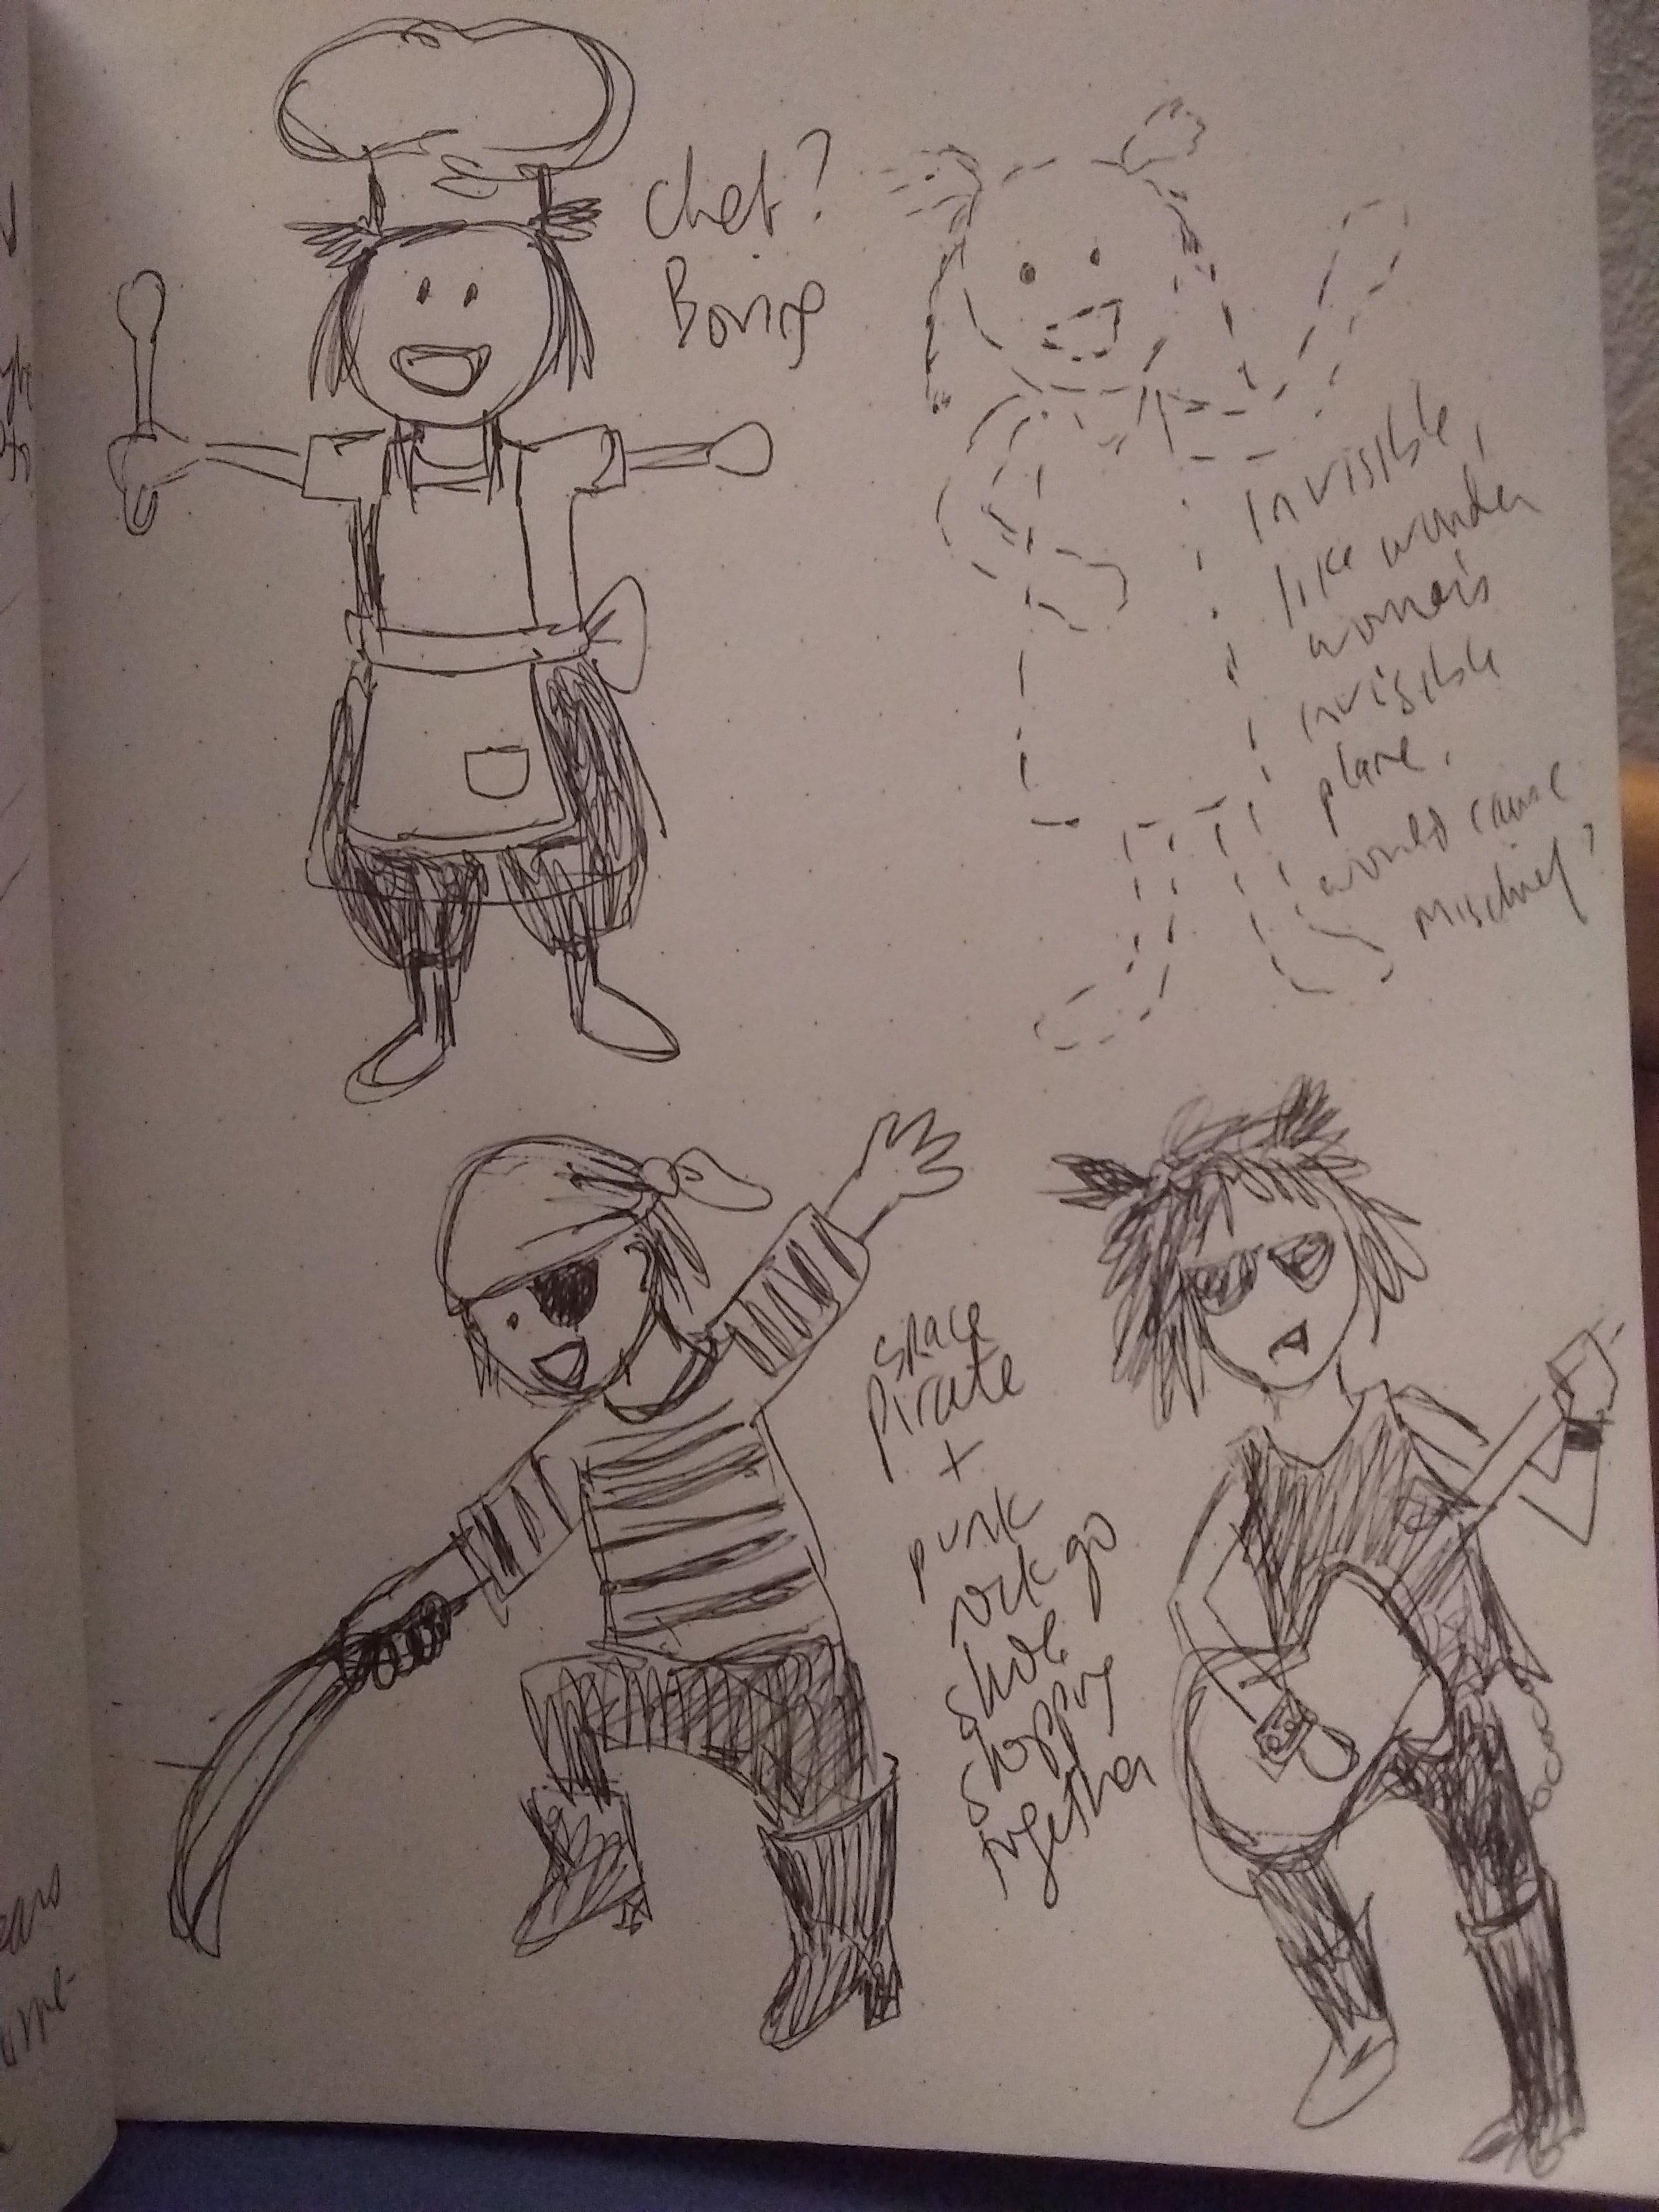 chef?
Boring
Invisible,
like wonder
woman's
invisible
plane.
would cause
mischief?
space
pirate
+
punk
rock go
shoe
shopping
together
ears